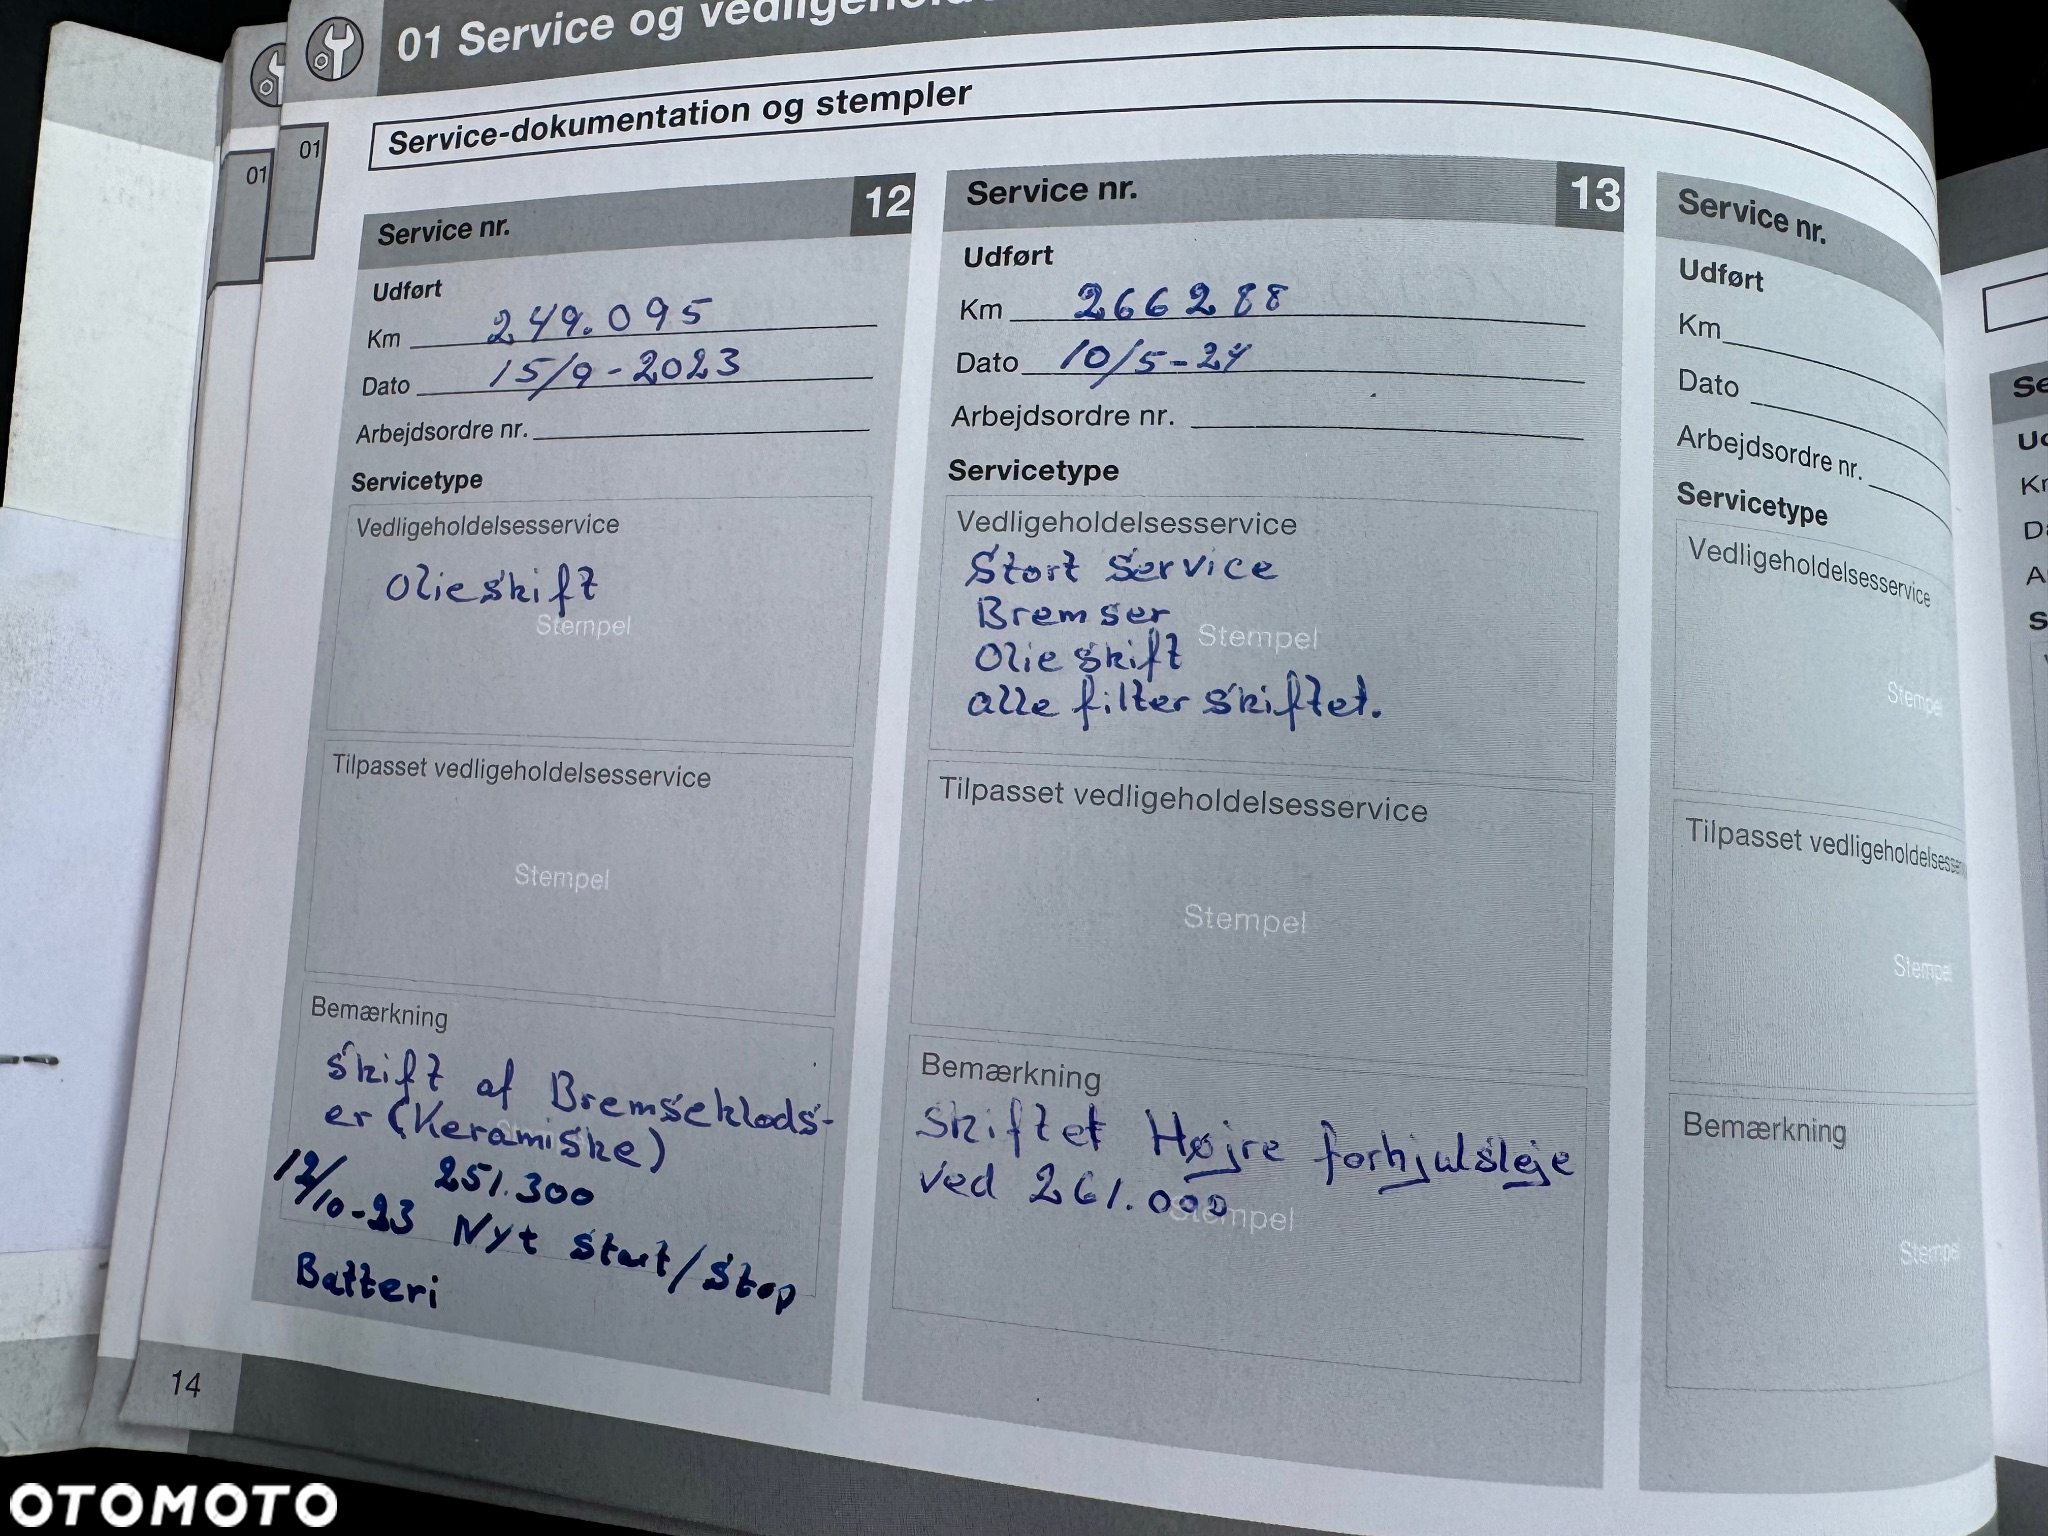 01 Service og vedligehold
Service-dokumentation og stempler
01
01
Service nr. 12
Udført
Km 249.095
Dato 15/9-2023
Arbejdsordre nr.
Servicetype
Vedligeholdelsesservice
Olieskift
Stempel
Tilpasset vedligeholdelsesservice
Stempel
Bemærkning
Skift af Bremseklods-
er (Keramiske)
12/10-23 251.300
Nyt Start/Stop
Batteri
Service nr. 13
Udført
Km 266288
Dato 10/5-24
Arbejdsordre nr.
Servicetype
Vedligeholdelsesservice
Stort Service
Bremser
Stempel
Olieskift
alle filter skiftet.
Tilpasset vedligeholdelsesservice
Stempel
Bemærkning
Skiftet Højre forhjulsleje
ved 261.000
Stempel
Service nr.
Udført
Km
Dato
Arbejdsordre nr.
Servicetype
Vedligeholdelsesservice
Stempel
Tilpasset
Stempel
Bemærkning
Stempel
14
OTOMOTO